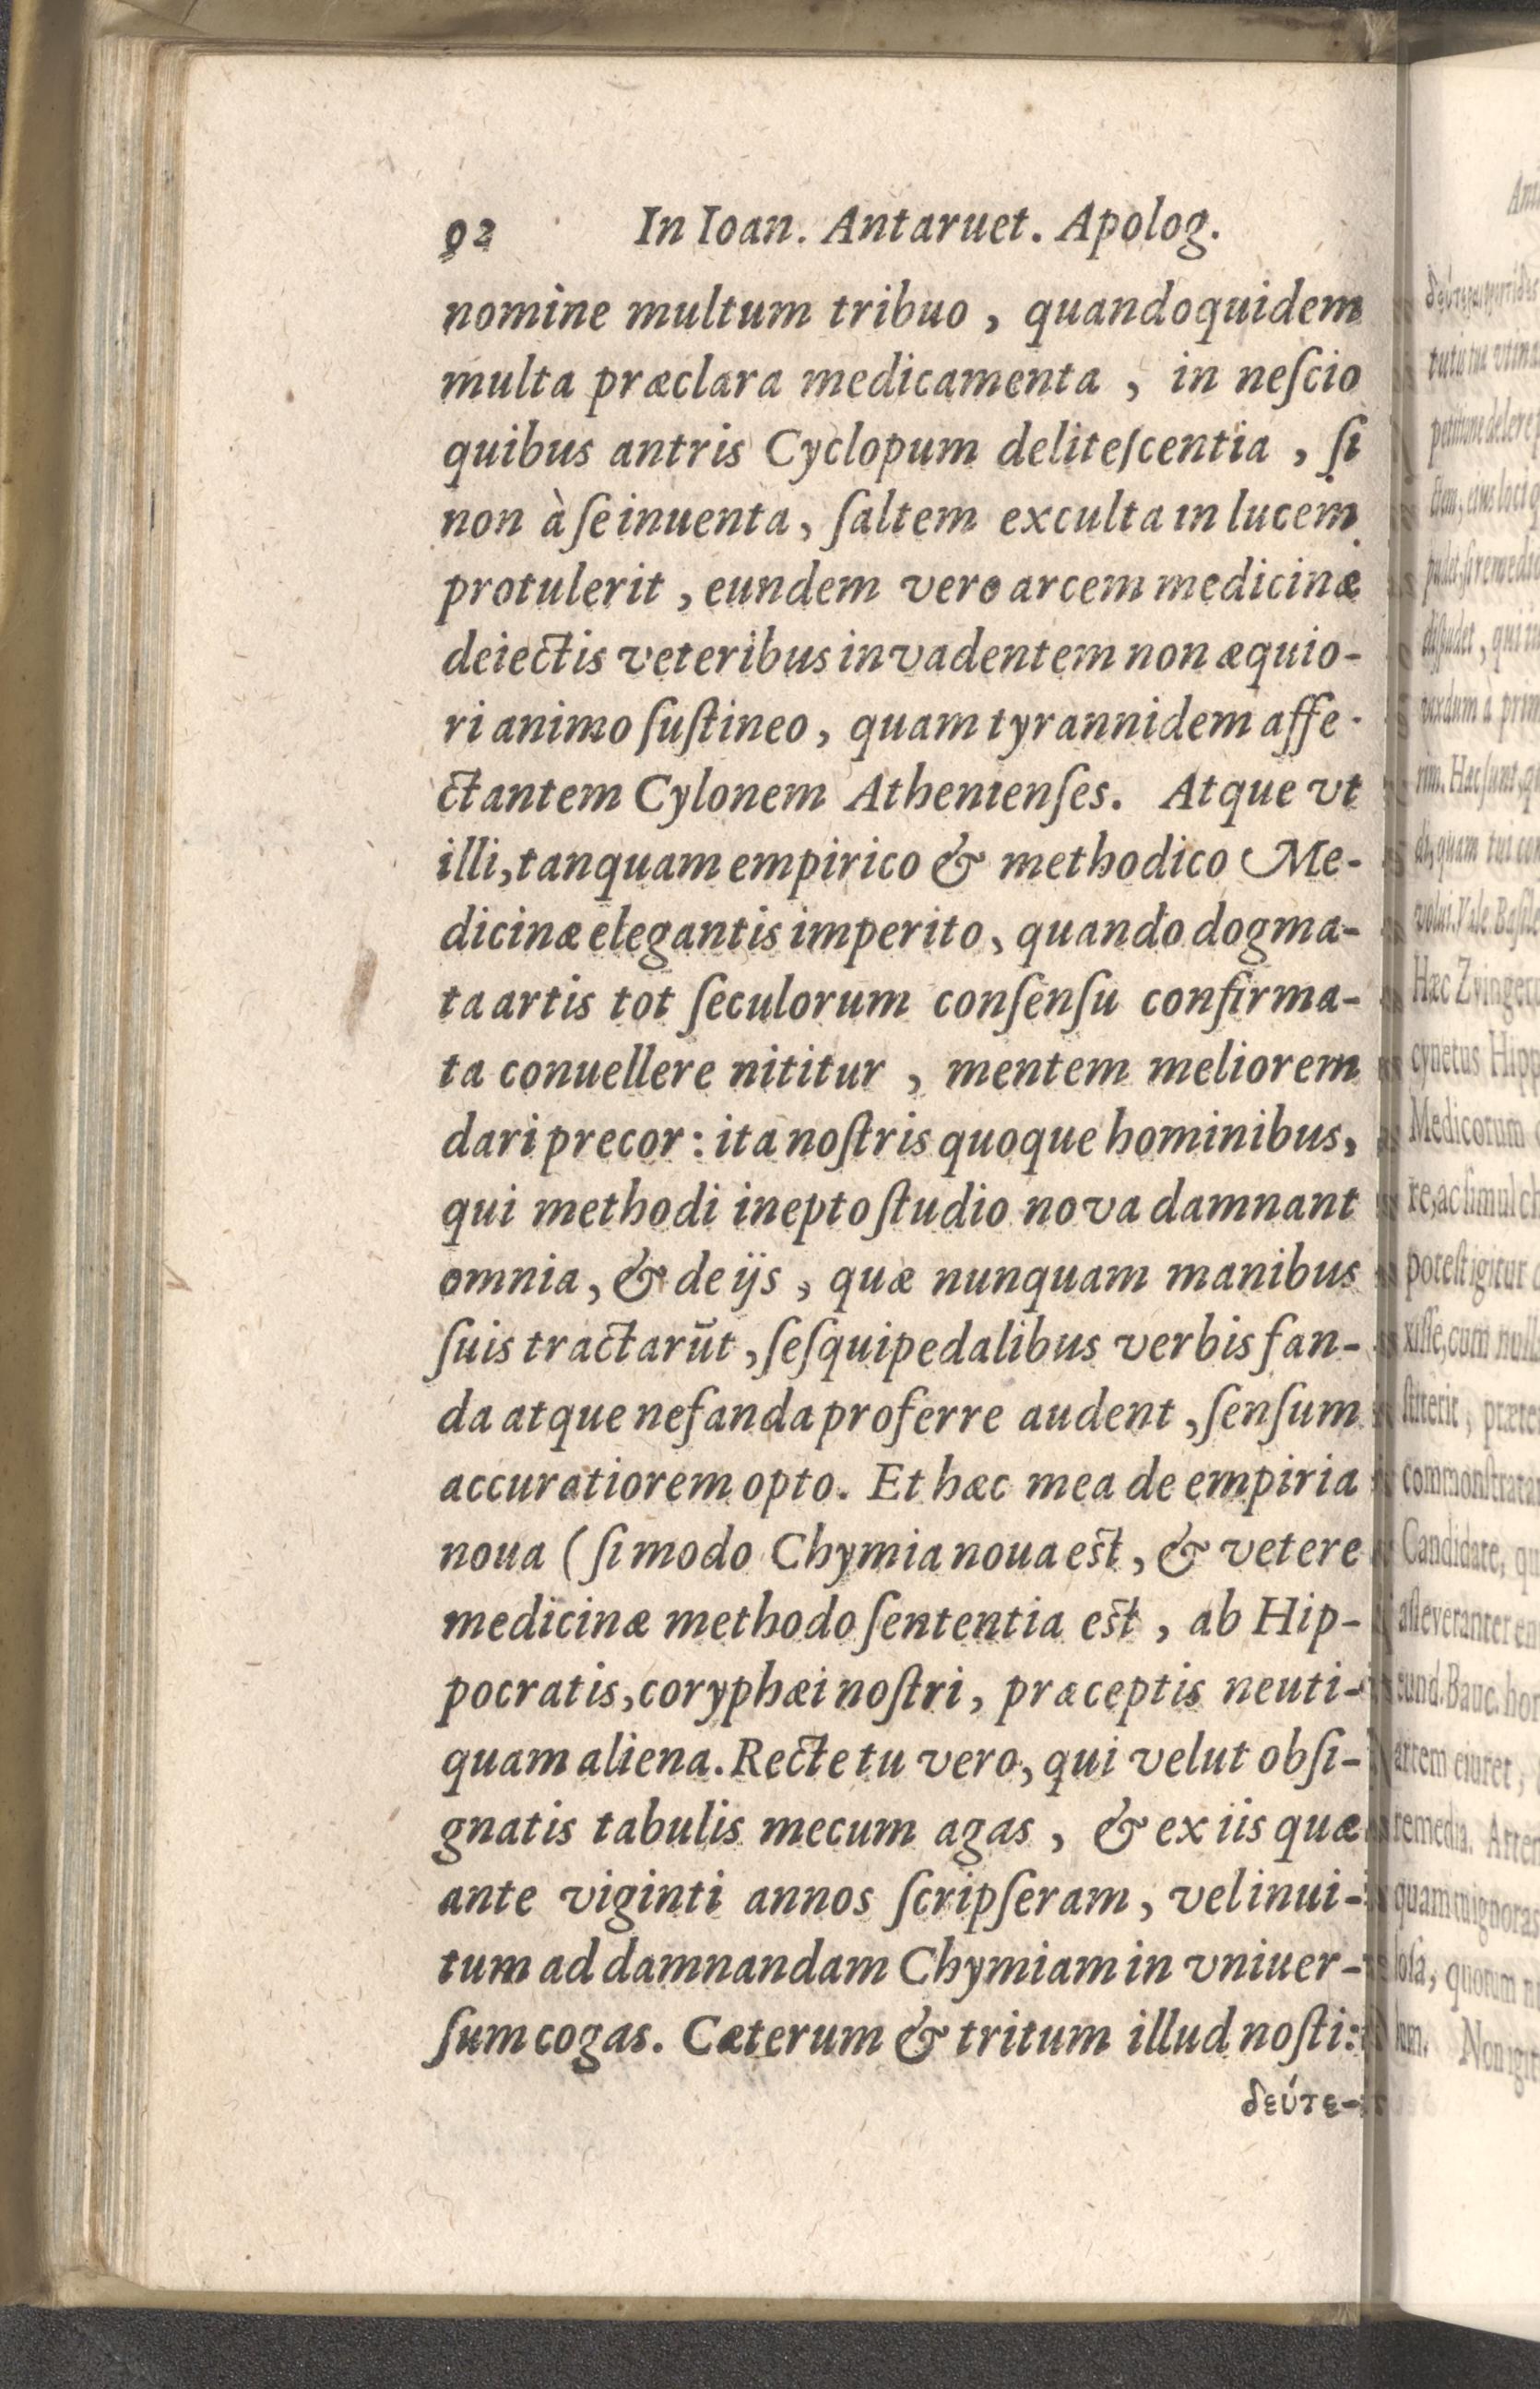 92 In Ioan. Antaruet. Apolog.
nomine multum tribuo, quandoquidem
multa præclara medicamenta, in neſcio
quibus antris Cyclopum deliteſcentia, ſi
non à ſe inuenta, ſaltem exculta in lucem
protulerit, eundem vero arcem medicinæ
deiectis veteribus invadentem non æquio-
ri animo ſuſtineo, quam tyrannidem affe-
ctantem Cylonem Athenienſes. Atque vt
illi, tanquam empirico & methodico Me-
dicinæ elegantis imperito, quando dogma-
ta artis tot ſeculorum conſenſu confirma-
ta conuellere nititur, mentem meliorem
dari precor: ita noſtris quoque hominibus,
qui methodi inepto ſtudio nova damnant
omnia, & de ijs, quæ nunquam manibus
ſuis tractarūt, ſeſquipedalibus verbis fan-
da atque nefanda proferre audent, ſenſum
accuratiorem opto. Et hæc mea de empiria
noua (ſi modo Chymia noua est, & vetere
medicinæ methodo ſententia est, ab Hip-
pocratis, coryphæi noſtri, præceptis neuti-
quam aliena. Recte tu vero, qui velut obſi-
gnatis tabulis mecum agas, & ex iis quæ
ante viginti annos ſcripſeram, vel inui-
tum ad damnandam Chymiam in vniuer-
ſum cogas. Cæterum & tritum illud noſti:
δεύτε-
tutò tuâ
petitione delere
Hæc Zvingeru
cynetus Hipp
Medicorum
re, ac simul ch
poteſt igitur
xiſſe, cum null
ſtiterit, præter
commonſtrata
Candidate, qu
aſſeveranter en
eund. Bauc. hor
artem eiuret,
remedia. Arte
quam tu ignoras
loſa, quorum
lum. Non igit